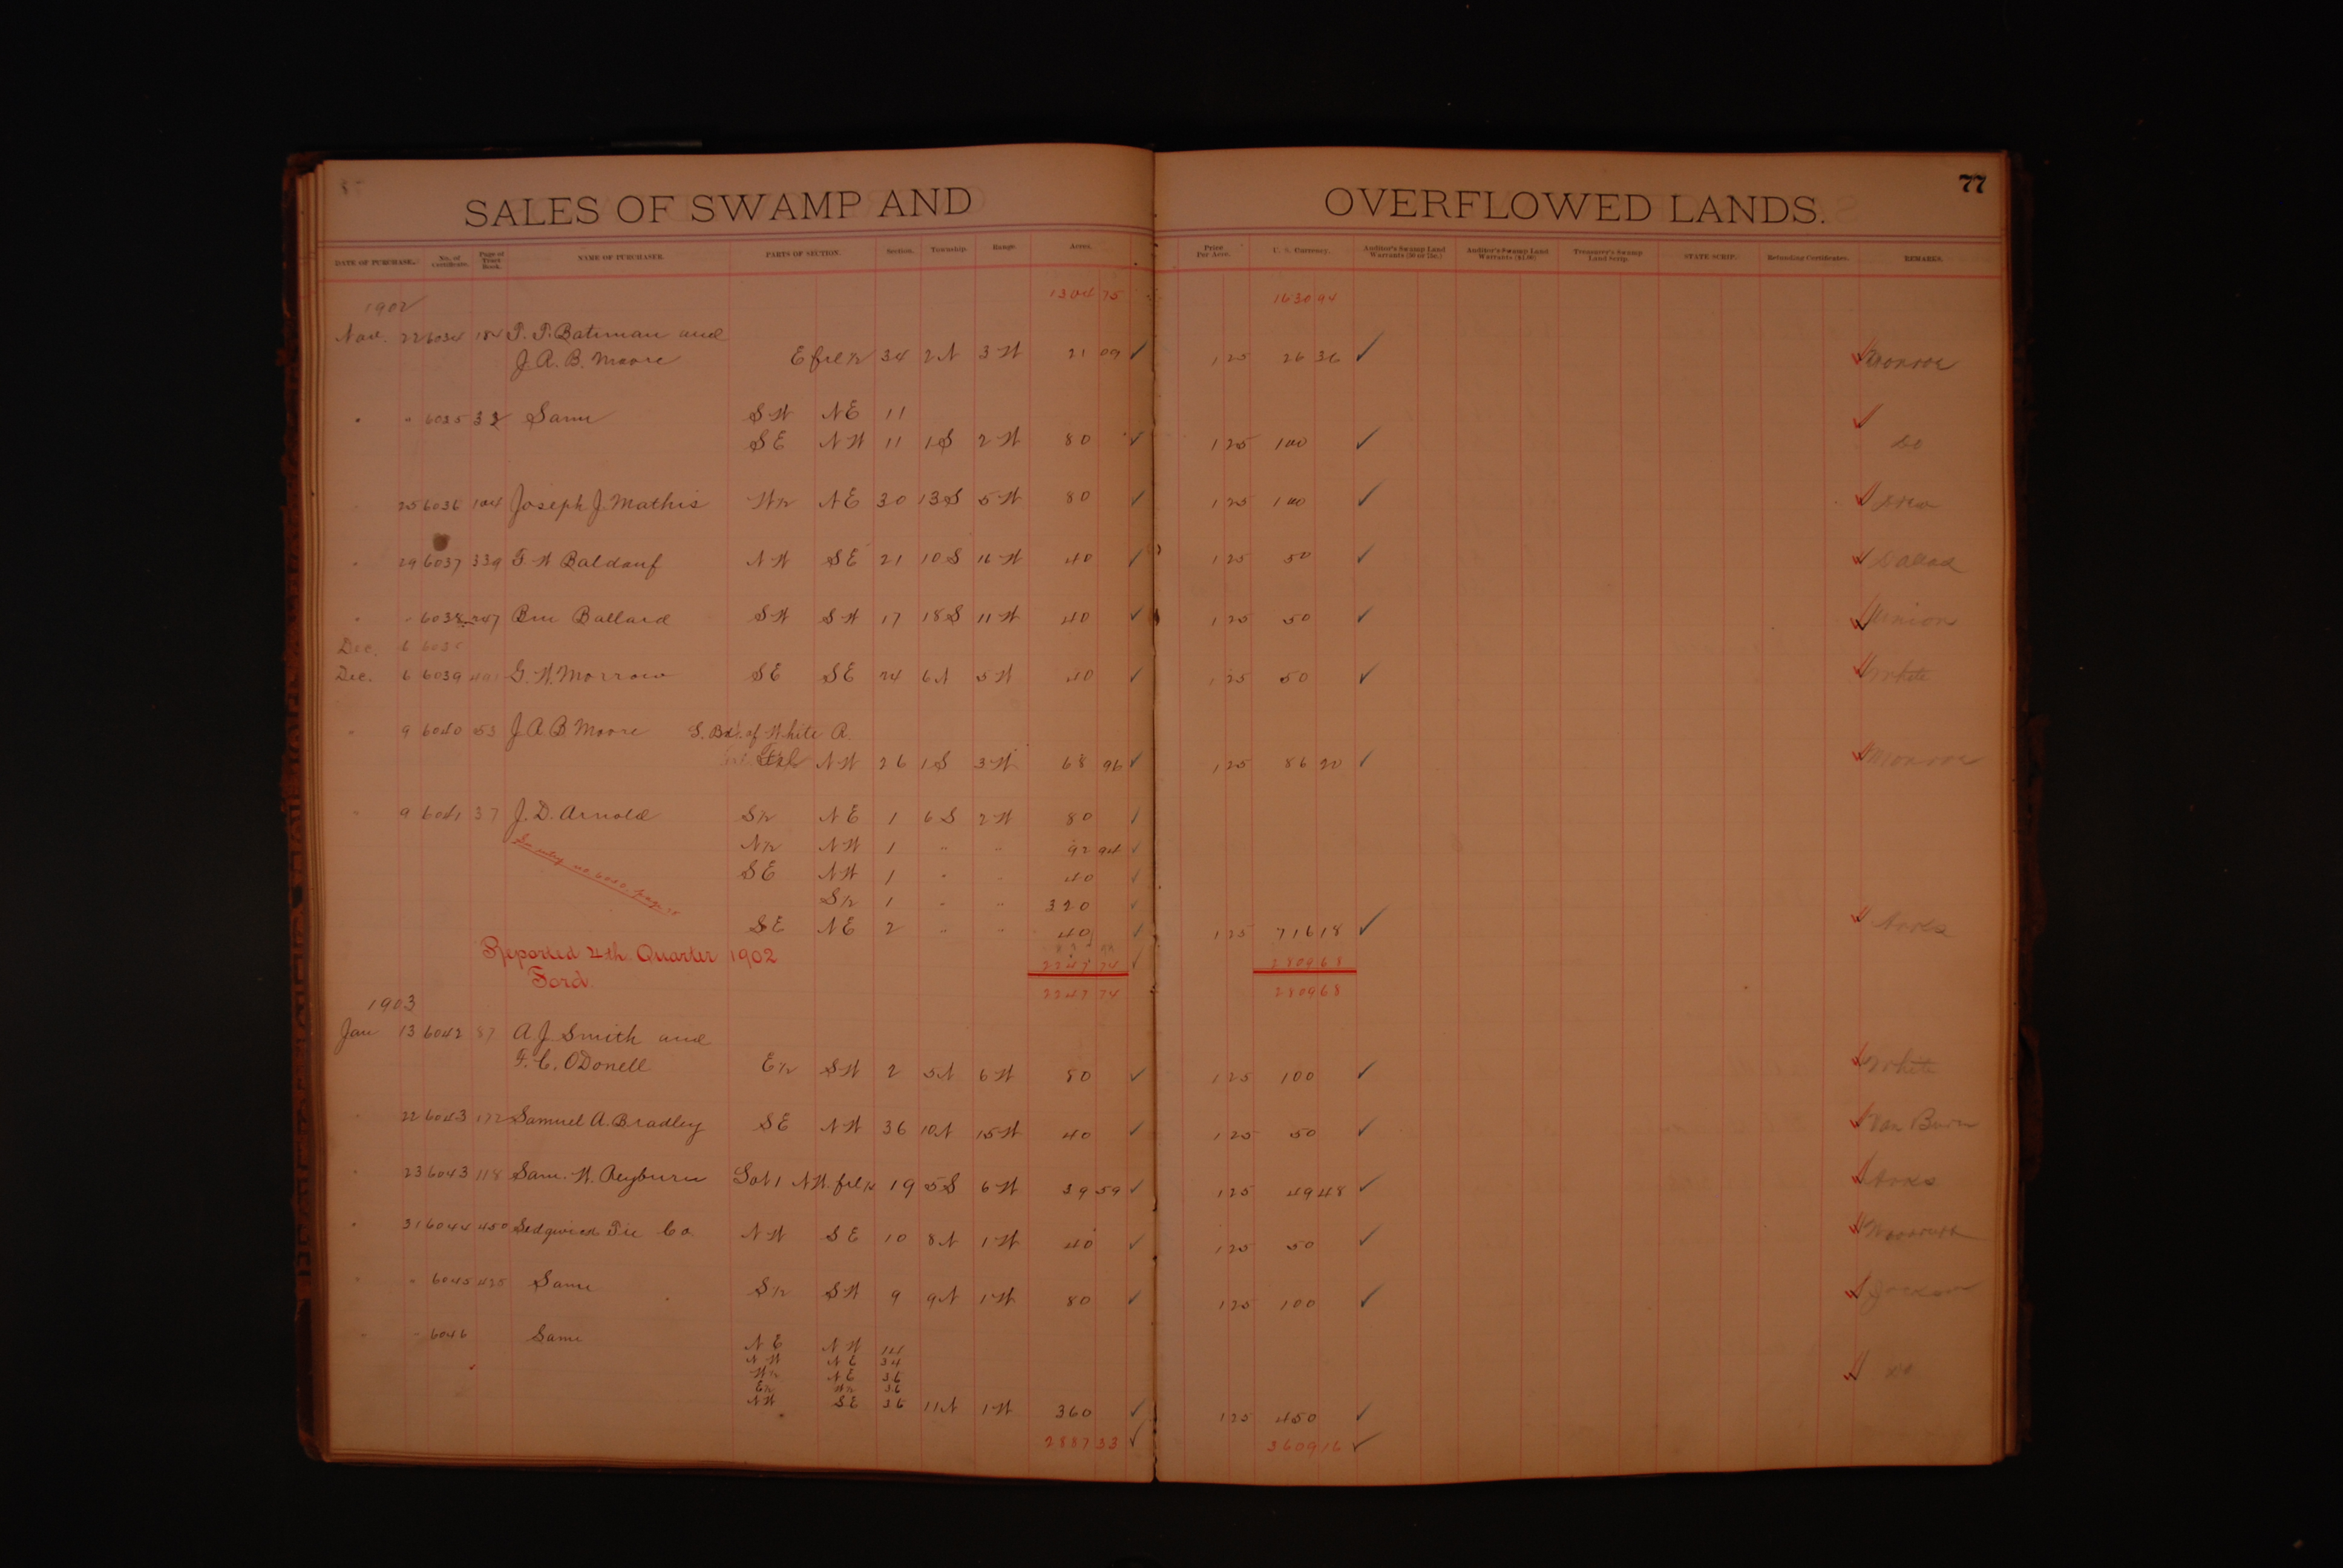 77
SALES OF SWAMP AND OVERFLOWED LANDS.
DATE OF PURCHASE. No. of Certificate. Page of Tract Book. NAME OF PURCHASER. PARTS OF SECTION. Section. Township. Range. Acres. Price Per Acre. U. S. Currency. Auditor's Swamp Land Warrants (50 or 75c.) Auditor's Swamp Land Warrants ($1.00) Treasurer's Swamp Land Scrip. STATE SCRIP. Refunding Certificates. REMARKS.
1304 75 1630 94
1902
Nov. 22 6034 184 T. T. Bateman and
J. A. B. Moore E frl ½ 34 2N 3W 21 09 ✓ 1 25 26 36 ✓ Monroe
" " 6035 33 Same SW NE 11
SE NW 11 1S 2W 80 ✓ 1 25 100 ✓ do
25 6036 104 Joseph J. Mathis W½ NE 30 13S 5W 80 ✓ 1 25 100 ✓ Drew
" 29 6037 339 F. W Baldauf NW SE 21 10S 16W 40 ✓ 1 25 50 ✓ Dallas
" " 6038 247 Ben Ballard SW SW 17 18S 11W 40 ✓ 1 25 50 ✓ Union
Dec. 6 603
Dec. 6 6039 401 G. W. Morrow SE SE 24 6N 5W 40 ✓ 1 25 50 ✓ White
" 9 6040 53 J. A. B. Moore S. Bd. of White R.
Frl NW 26 1S 3W 68 96 ✓ 1 25 86 20 ✓ Monroe
" 9 6041 37 J. D. Arnold S½ NE 1 6S 2W 80 ✓
N½ NW 1 " " 92 94 ✓
SE NW 1 " " 40 ✓
S½ 1 " " 320 ✓
SE NE 2 " " 40 ✓ 1 25 716 18 ✓ Arks
Reported 4th. Quarter 1902 2247 74 ✓ 2809 68
Ford. 2247 74 2809 68
1903
Jan 13 6042 87 A. J. Smith and
F. C. ODonell E½ SW 2 5N 6W 80 ✓ 1 25 100 ✓ White
" 22 6043 172 Samuel A. Bradley SE NW 36 10N 15W 40 ✓ 1 25 50 ✓ Van Buren
" 23 6043 118 Sam. W. Reyburn Lot 1 NW. frl ¼ 19 5S 6W 39 59 ✓ 1 25 49 48 ✓ Arks
" 31 6044 450 Sedgwick Tie Co NW SE 10 8N 1W 40 ✓ 1 25 50 ✓ Woodruff
" " 6045 425 Same S½ SW 9 9N 1W 80 ✓ 1 25 100 ✓ Jackson
" " 6046 Same NE NW 14
NW NE 34
W½ NE 36
E½ W½ 36
NW SE 36 11N 1W 360 ✓ 1 25 450 ✓ do
2887 33 ✓ 3609 16 ✓